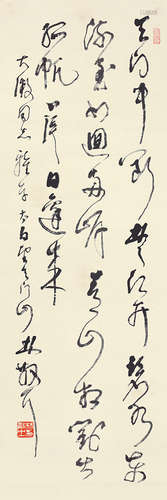 天门中断楚江开碧水东
流至此回两岸青山相对出
孤帆一片日边来
大激同志雅存太白望天门山林散耳